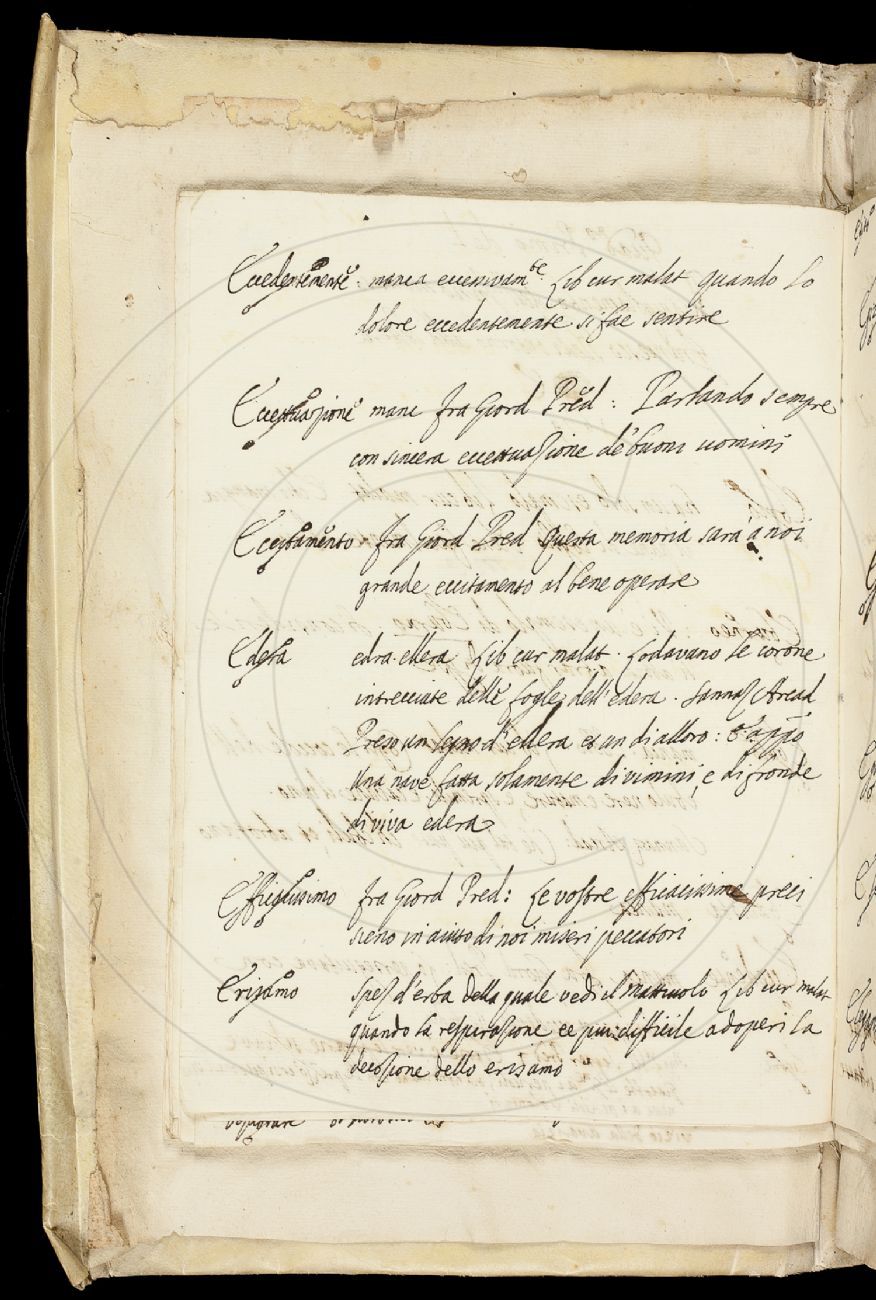 Eccedentemente. manca eccessivam.te Lib cur malat quando lo
dolore eccedentemente si fae sentire
Eccettuazione manc fra Giord Pred: Parlando sempre
con sincera eccettuazione de' buoni uomini
Eccitamento fra Giord Pred Questa memoria sarà a noi
grande eccitamento al bene operare
Edera edra. ellera. Lib cur malat. Lodavano le corone
intrecciate delle foglie dell'edera. Sannaz Arcad
Preso un legno d'ellera et un di alloro: E appo
Una nave fatta solamente di vimini, e di fronde
di viva edera
Efficacissimo fra Giord Pred: Le vostre efficacissime preci
sieno in aiuto di noi miseri peccatori
Erisamo spez d'erba della quale vedi il Mattiuolo Lib cur malat
quando la respirazione ee piu difficile adoperi la
decozione dello erisamo